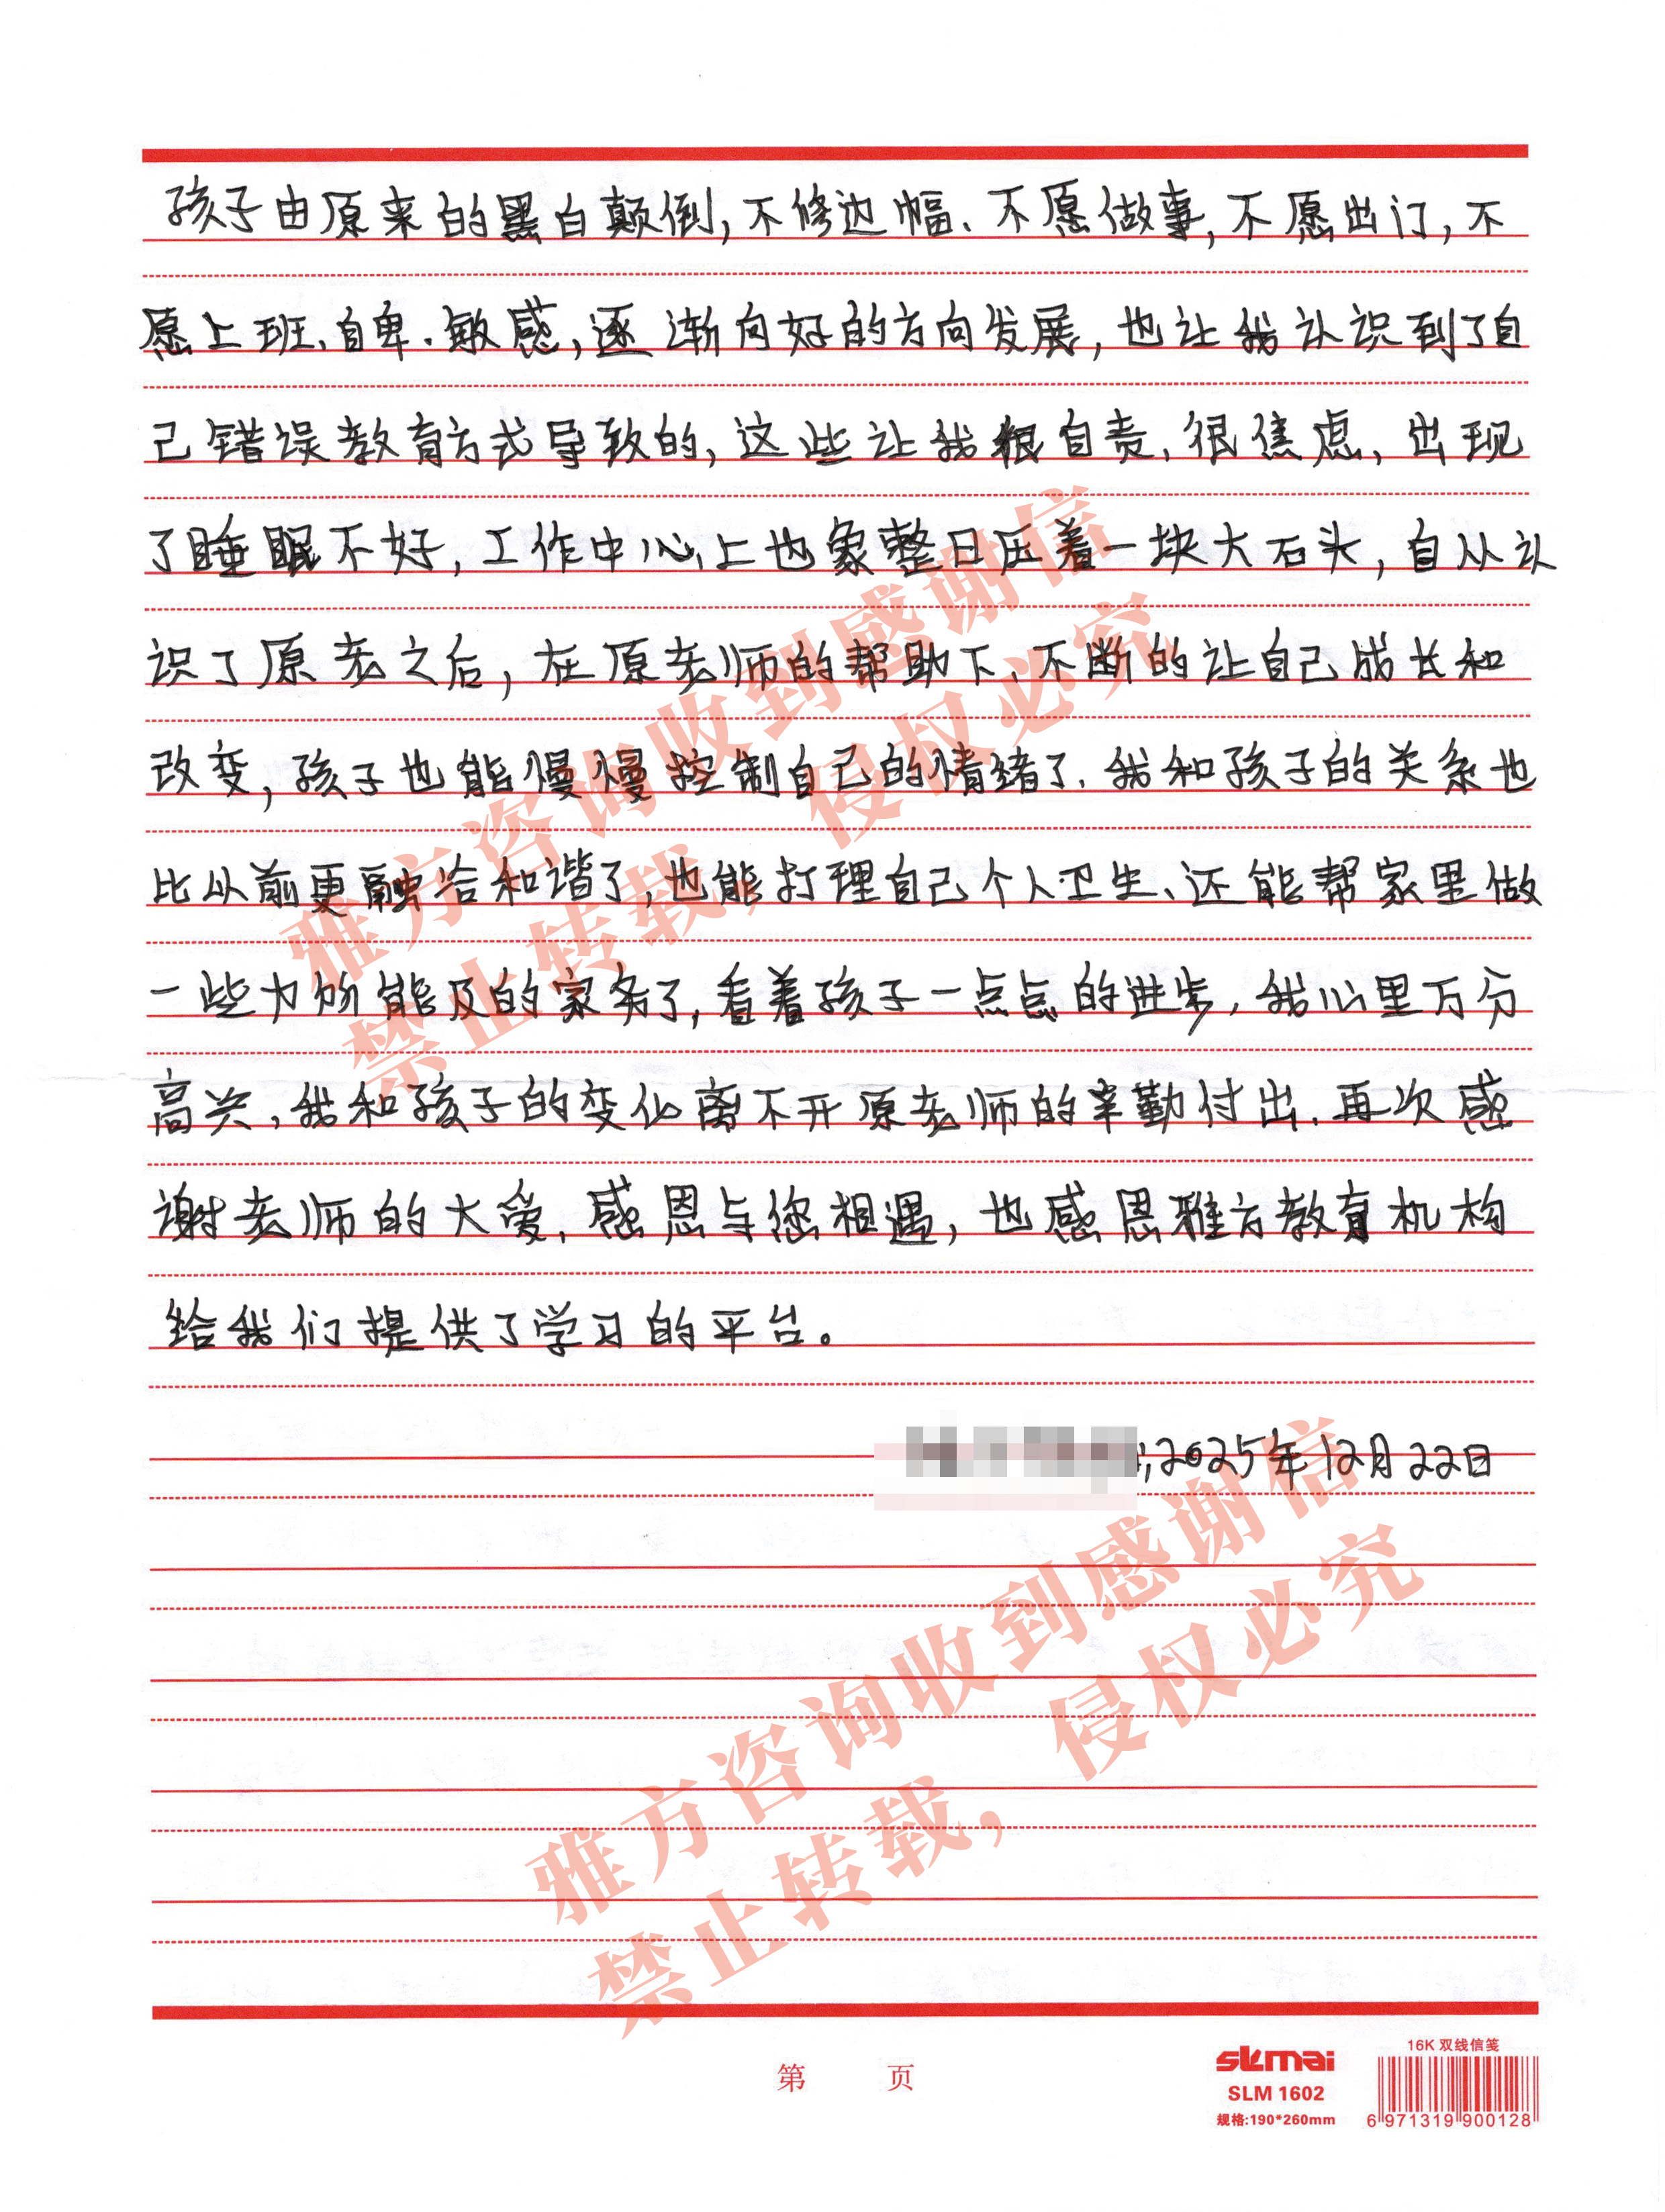 孩子由原来的黑白颠倒,不修边幅、不愿做事,不愿出门,不
愿上班、自卑.敏感,逐渐向好的方向发展,也让我认识到了自
己错误教育方式导致的,这些让我很自责,很焦虑,出现
了睡眠不好,工作中心上也象整日压着一块大石头,自从认
识了原老之后,在原老师的帮助下、不断的让自己成长和
改变,孩子也能慢慢控制自己的情绪了.我和孩子的关系也
比以前更融洽和谐了,也能打理自己个人卫生、还能帮家里做
一些力所能及的家务了,看着孩子一点点的进步,我心里万分
高兴,我和孩子的变化离不开原老师的辛勤付出.再次感
谢老师的大爱,感恩与您相遇,也感恩雅方教育机构
给我们提供了学习的平台。
2025年12月22日
雅方咨询收到感谢信
禁止转载,侵权必究
雅方咨询收到感谢信
禁止转载,侵权必究
第 页
skmai
SLM 1602
规格:190*260mm
16K 双线信笺
6 971319 900128